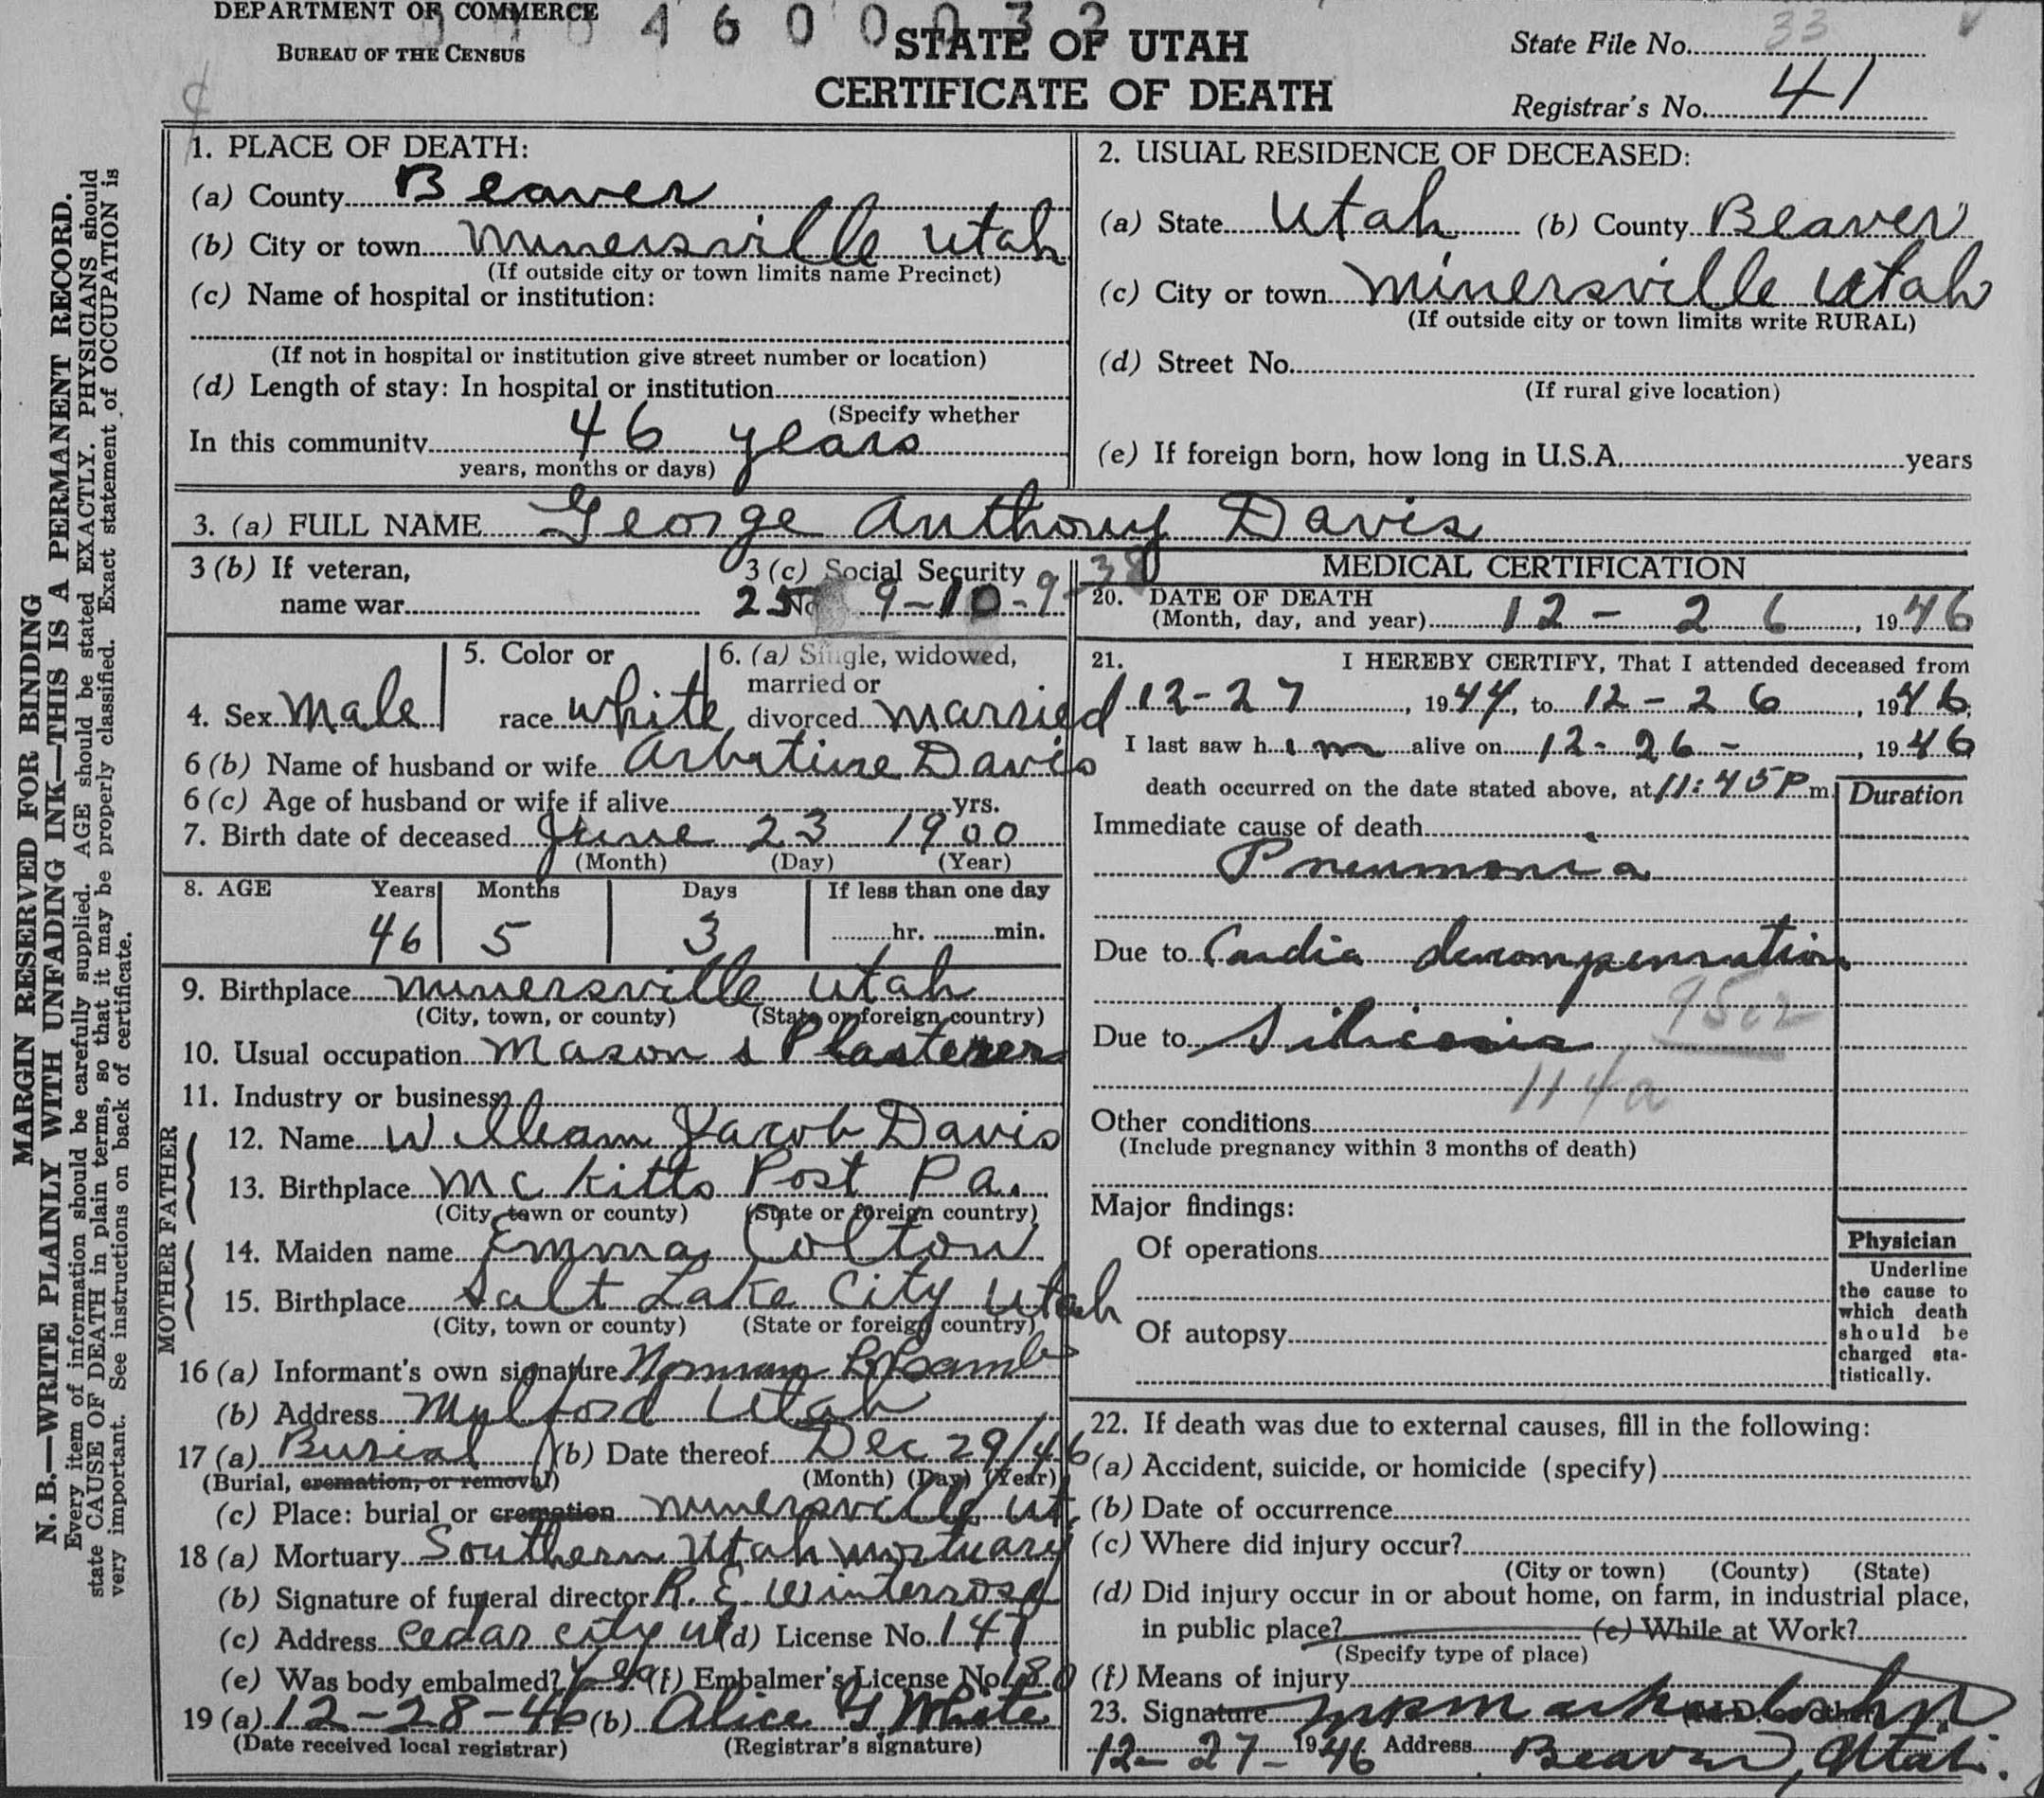 DEPARTMENT OF COMMERCE
BUREAU OF THE CENSUS
4 6 0 0 0 3 2
STATE OF UTAH
CERTIFICATE OF DEATH
State File No. 33
Registrar's No. 41
MARGIN RESERVED FOR BINDING
N. B.—WRITE PLAINLY WITH UNFADING INK—THIS IS A PERMANENT RECORD.
Every item of information should be carefully supplied. AGE should be stated EXACTLY. PHYSICIANS should
state CAUSE OF DEATH in plain terms, so that it may be properly classified. Exact statement of OCCUPATION is
very important. See instructions on back of certificate.
1. PLACE OF DEATH:
(a) County Beaver
(b) City or town Minersville Utah
(If outside city or town limits name Precinct)
(c) Name of hospital or institution:
(If not in hospital or institution give street number or location)
(d) Length of stay: In hospital or institution
(Specify whether
In this community 46 years
years, months or days)
2. USUAL RESIDENCE OF DECEASED:
(a) State Utah (b) County Beaver
(c) City or town Minersville Utah
(If outside city or town limits write RURAL)
(d) Street No.
(If rural give location)
(e) If foreign born, how long in U.S.A. years
3. (a) FULL NAME George Anthony Davis
3 (b) If veteran,
name war
3 (c) Social Security
No. 9-10-9-38
4. Sex Male
5. Color or
race White
6. (a) Single, widowed,
married or
divorced Married
6 (b) Name of husband or wife Arbatine Davis
6 (c) Age of husband or wife if alive yrs.
7. Birth date of deceased June 23 1900
(Month) (Day) (Year)
8. AGE Years Months Days If less than one day
46 5 3 hr. min.
9. Birthplace Minersville Utah
(City, town, or county) (State or foreign country)
10. Usual occupation Mason & Plasterer
11. Industry or business
FATHER
12. Name William Jacob Davis
13. Birthplace Mc Kitts Post Pa.
(City, town or county) (State or foreign country)
MOTHER
14. Maiden name Emma Colton
15. Birthplace Salt Lake City Utah
(City, town or county) (State or foreign country)
16 (a) Informant's own signature Norman
(b) Address Mulford Utah
17 (a) Burial (b) Date thereof Dec 29/46
(Burial, cremation, or removal) (Month) (Day) (Year)
(c) Place: burial or cremation Minersville Ut.
18 (a) Mortuary Southern Utah Mortuary
(b) Signature of funeral director R. E. Winterrose
(c) Address Cedar City Ut (d) License No. 147
(e) Was body embalmed? Yes (f) Embalmer's License No. 180
19 (a) 12-28-46 (b) Alice G. White
(Date received local registrar) (Registrar's signature)
MEDICAL CERTIFICATION
20. DATE OF DEATH
(Month, day, and year) 12 - 26, 1946
21. I HEREBY CERTIFY, That I attended deceased from
12-27, 1944, to 12-26, 1946,
I last saw him alive on 12-26-, 1946
death occurred on the date stated above, at 11:45 P m.
Duration
Immediate cause of death
Pneumonia
Due to Cardia decompensation
95c2
Due to Silicosis
114a
Other conditions
(Include pregnancy within 3 months of death)
Major findings:
Of operations
Of autopsy
Physician
Underline
the cause to
which death
should be
charged sta-
tistically.
22. If death was due to external causes, fill in the following:
(a) Accident, suicide, or homicide (specify)
(b) Date of occurrence
(c) Where did injury occur?
(City or town) (County) (State)
(d) Did injury occur in or about home, on farm, in industrial place,
in public place? (e) While at Work?
(Specify type of place)
(f) Means of injury
23. Signature
12-27-1946 Address Beaver, Utah.